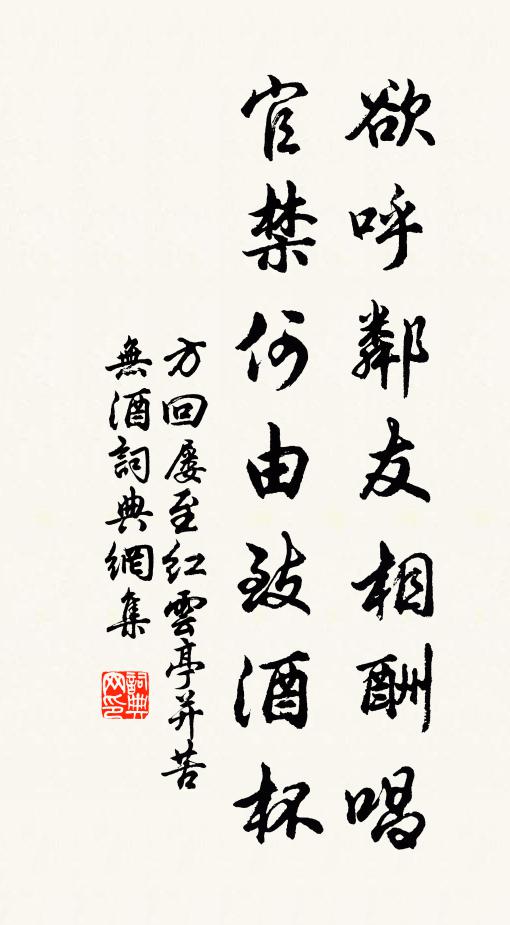 欲呼鄰友相酬唱
官禁何由致酒杯
方回屢至紅雲亭並苦
無酒詞典網集
詞典網印